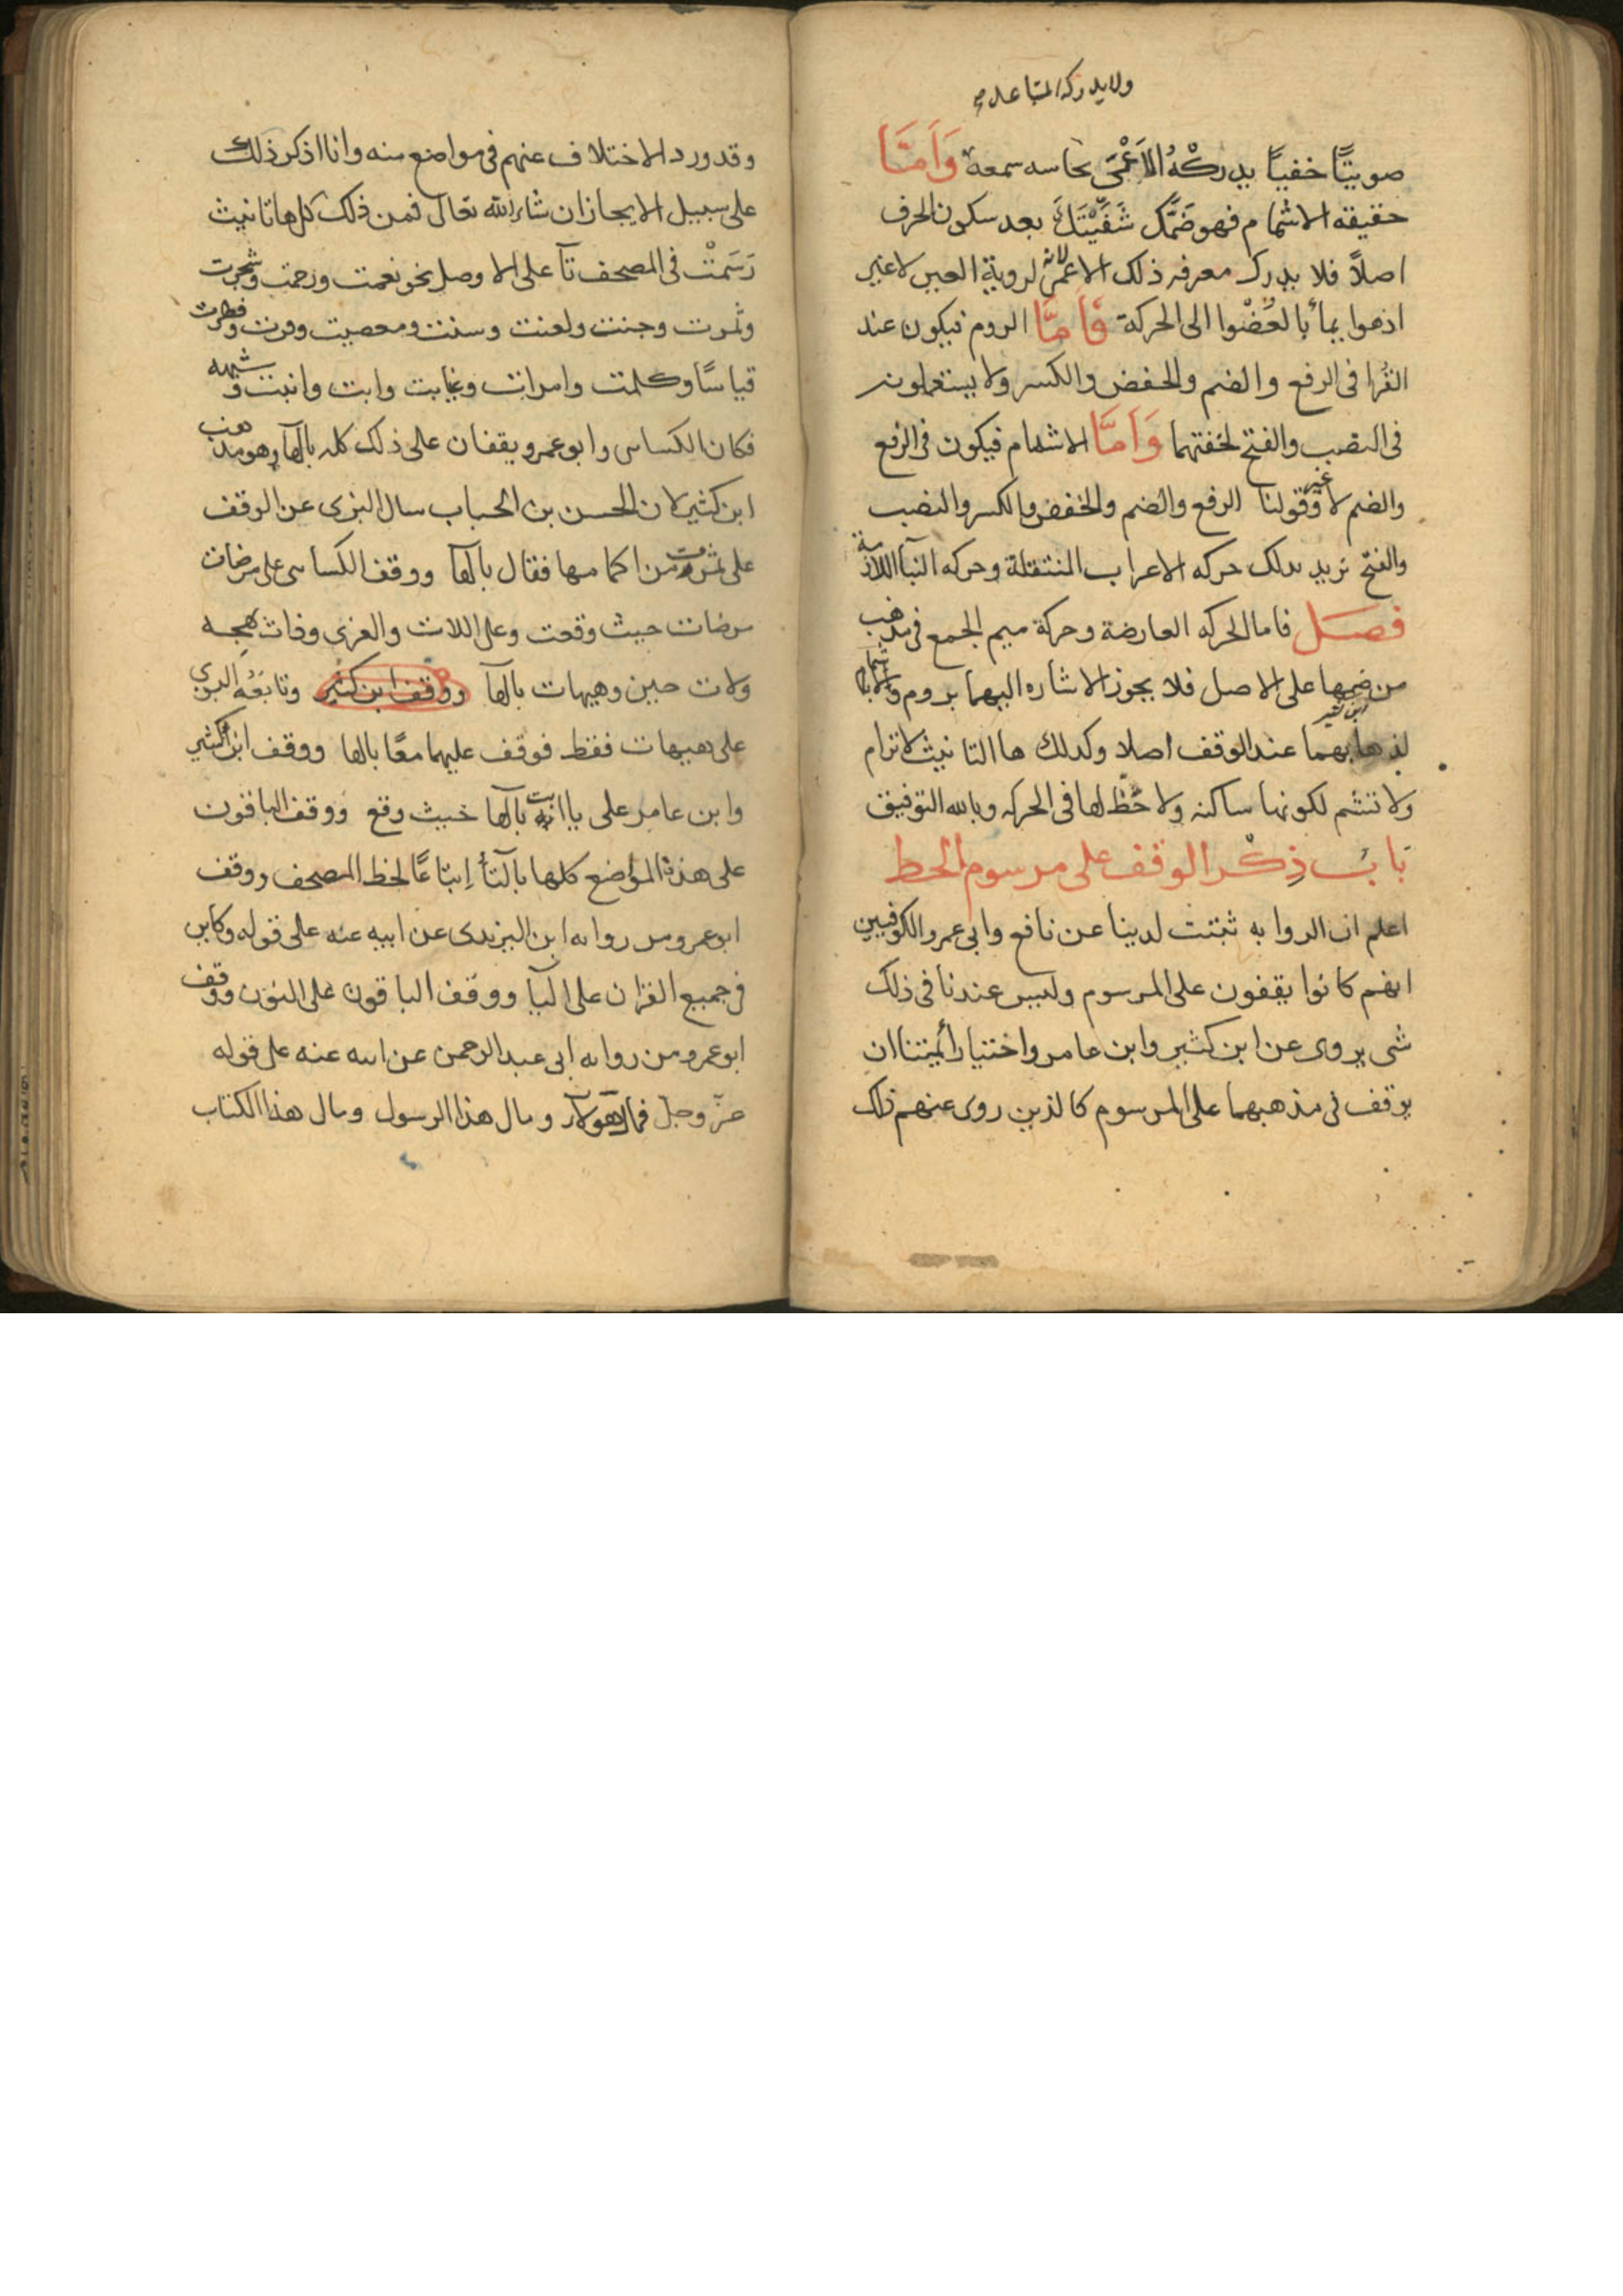 ولا يدركه المتباعد
صويتًا خفيًا يدركْهُ الاَعْمَى بحاسه سمعه وَاَمَّا
حقيقه الاشمام فهو ضَمُّك شَفَيْتَكَ بعد سكون الحرف
اصلاً فلا يدرك معرفه ذلك الاعمى لانه لروية العين لا غير
اذ هوا يماء بالعُضْوا الى الحركة فَاَمَّا الروم فيكون عند
القُرا فى الرفع والضم والخفض والكسر ولا يستعملونه
فى النصب والفتح لخفتهما وَاَمَّا الاشمام فيكون فى الرفع
والضم لا غير وقولنا الرفع والضم والخفض والكسر والنصب
والفتح نريد بدلك حركه الاعراب المنتقلة وحركه البنآ اللازمة
فصــل فاما الحركه العارضة وحركة ميم الجمع فى مذهب
من ضمها على الاصل فلا يجوز الاشاره اليهما بروم ولا باشمام
لذهابهما عند الوقف اصلا وكدلك ها التانيث لا ترام
ولا تشم لكونها ساكنه ولا حَظّ لها فى الحركه وبالله التوفيق
بَابُ ذِكْر الوقف على مرسوم الخط
اعلم ان الروايه ثبتت لدينا عن نافع وابى عمرو والكوفيين
انهم كانوا يقفون على المرسوم وليس عندنا فى ذلك
شى يروى عن ابن كثير وابن عامر واختيار أئمتنا ان
يوقف فى مذهبهما على المرسوم كالذين روى عنهم ذلك
وقد ورد الاختلاف عنهم فى مواضع منه وانا اذكر ذلك
على سبيل الايجاز ان شاء الله تعالى فمن ذلك كل ها تانيث
رَسَمَتْ فى المصحف تآ على الا وصل نحو نعمت ورحمت وشجرت
وثمرت وجنت ولعنت وسنت ومعصيت وقرت وفطرت
قياسًا وكلمت وامرات وغيابت وابت وانبت وشبهه
فكان الكساى وابو عمرو يقفان على ذلك كله بالهآ وهو مذهب
ابن كثير لان الحسن بن الحباب سال البزى عن الوقف
على ثمرت من اكمامها فقال بالهآ ووقف الكساى على مرضات
مرضات حيث وقعت وعلى اللات والعزى وذات بهجه
ولات حين وهيهات بالهآ ووقف ابن كثير وتابعَهُ البزى
على هيهات فقط فوقف عليهما معًا بالها ووقف ابن كثير
وابن عامر على يا ابت بالها حيث وقع ووقف الباقون
على هذه المواضع كلها بالتآ اِتباعًا لخط المصحف ووقف
ابو عمرو من روايه ابن اليزيدى عن ابيه عنه على قوله وكاين
فى جميع القران على اليآ ووقف الباقون على النون ووقف
ابو عمرو من روايه ابى عبد الرحمن عن ابيه عنه على قوله
عزّ وجلّ فمال هولآ ومال هذا الرسول ومال هذا الكتاب